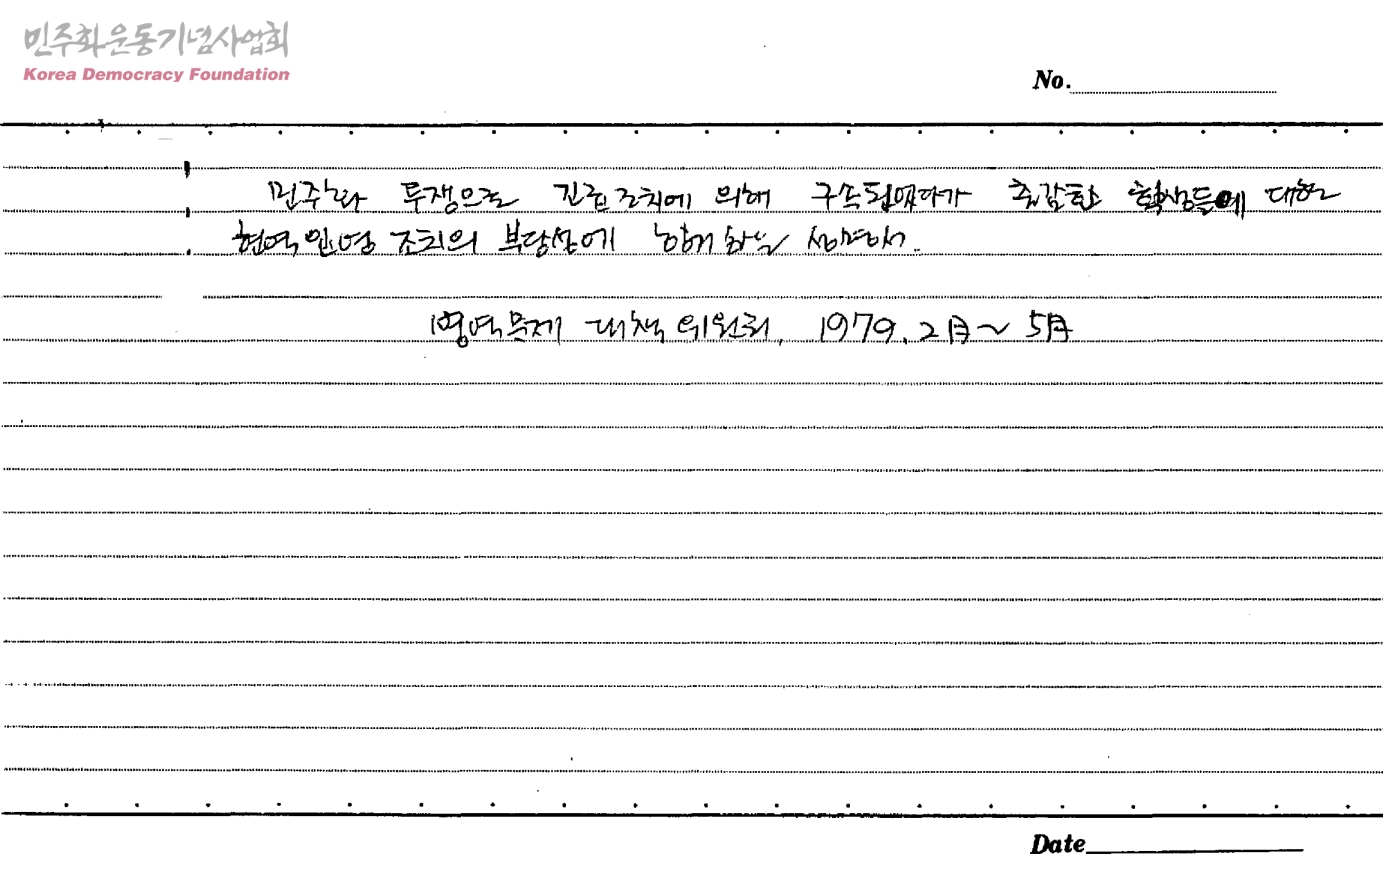 민주화운동기념사업회
Korea Democracy Foundation
No.
민주화 투쟁으로 긴급조치에 의해 구속되었다가 출감한 학생들에 대한
현역입영 조치의 부당성에 항거하는 성명서.
병역문제 대책위원회, 1979. 2月~5月
Date